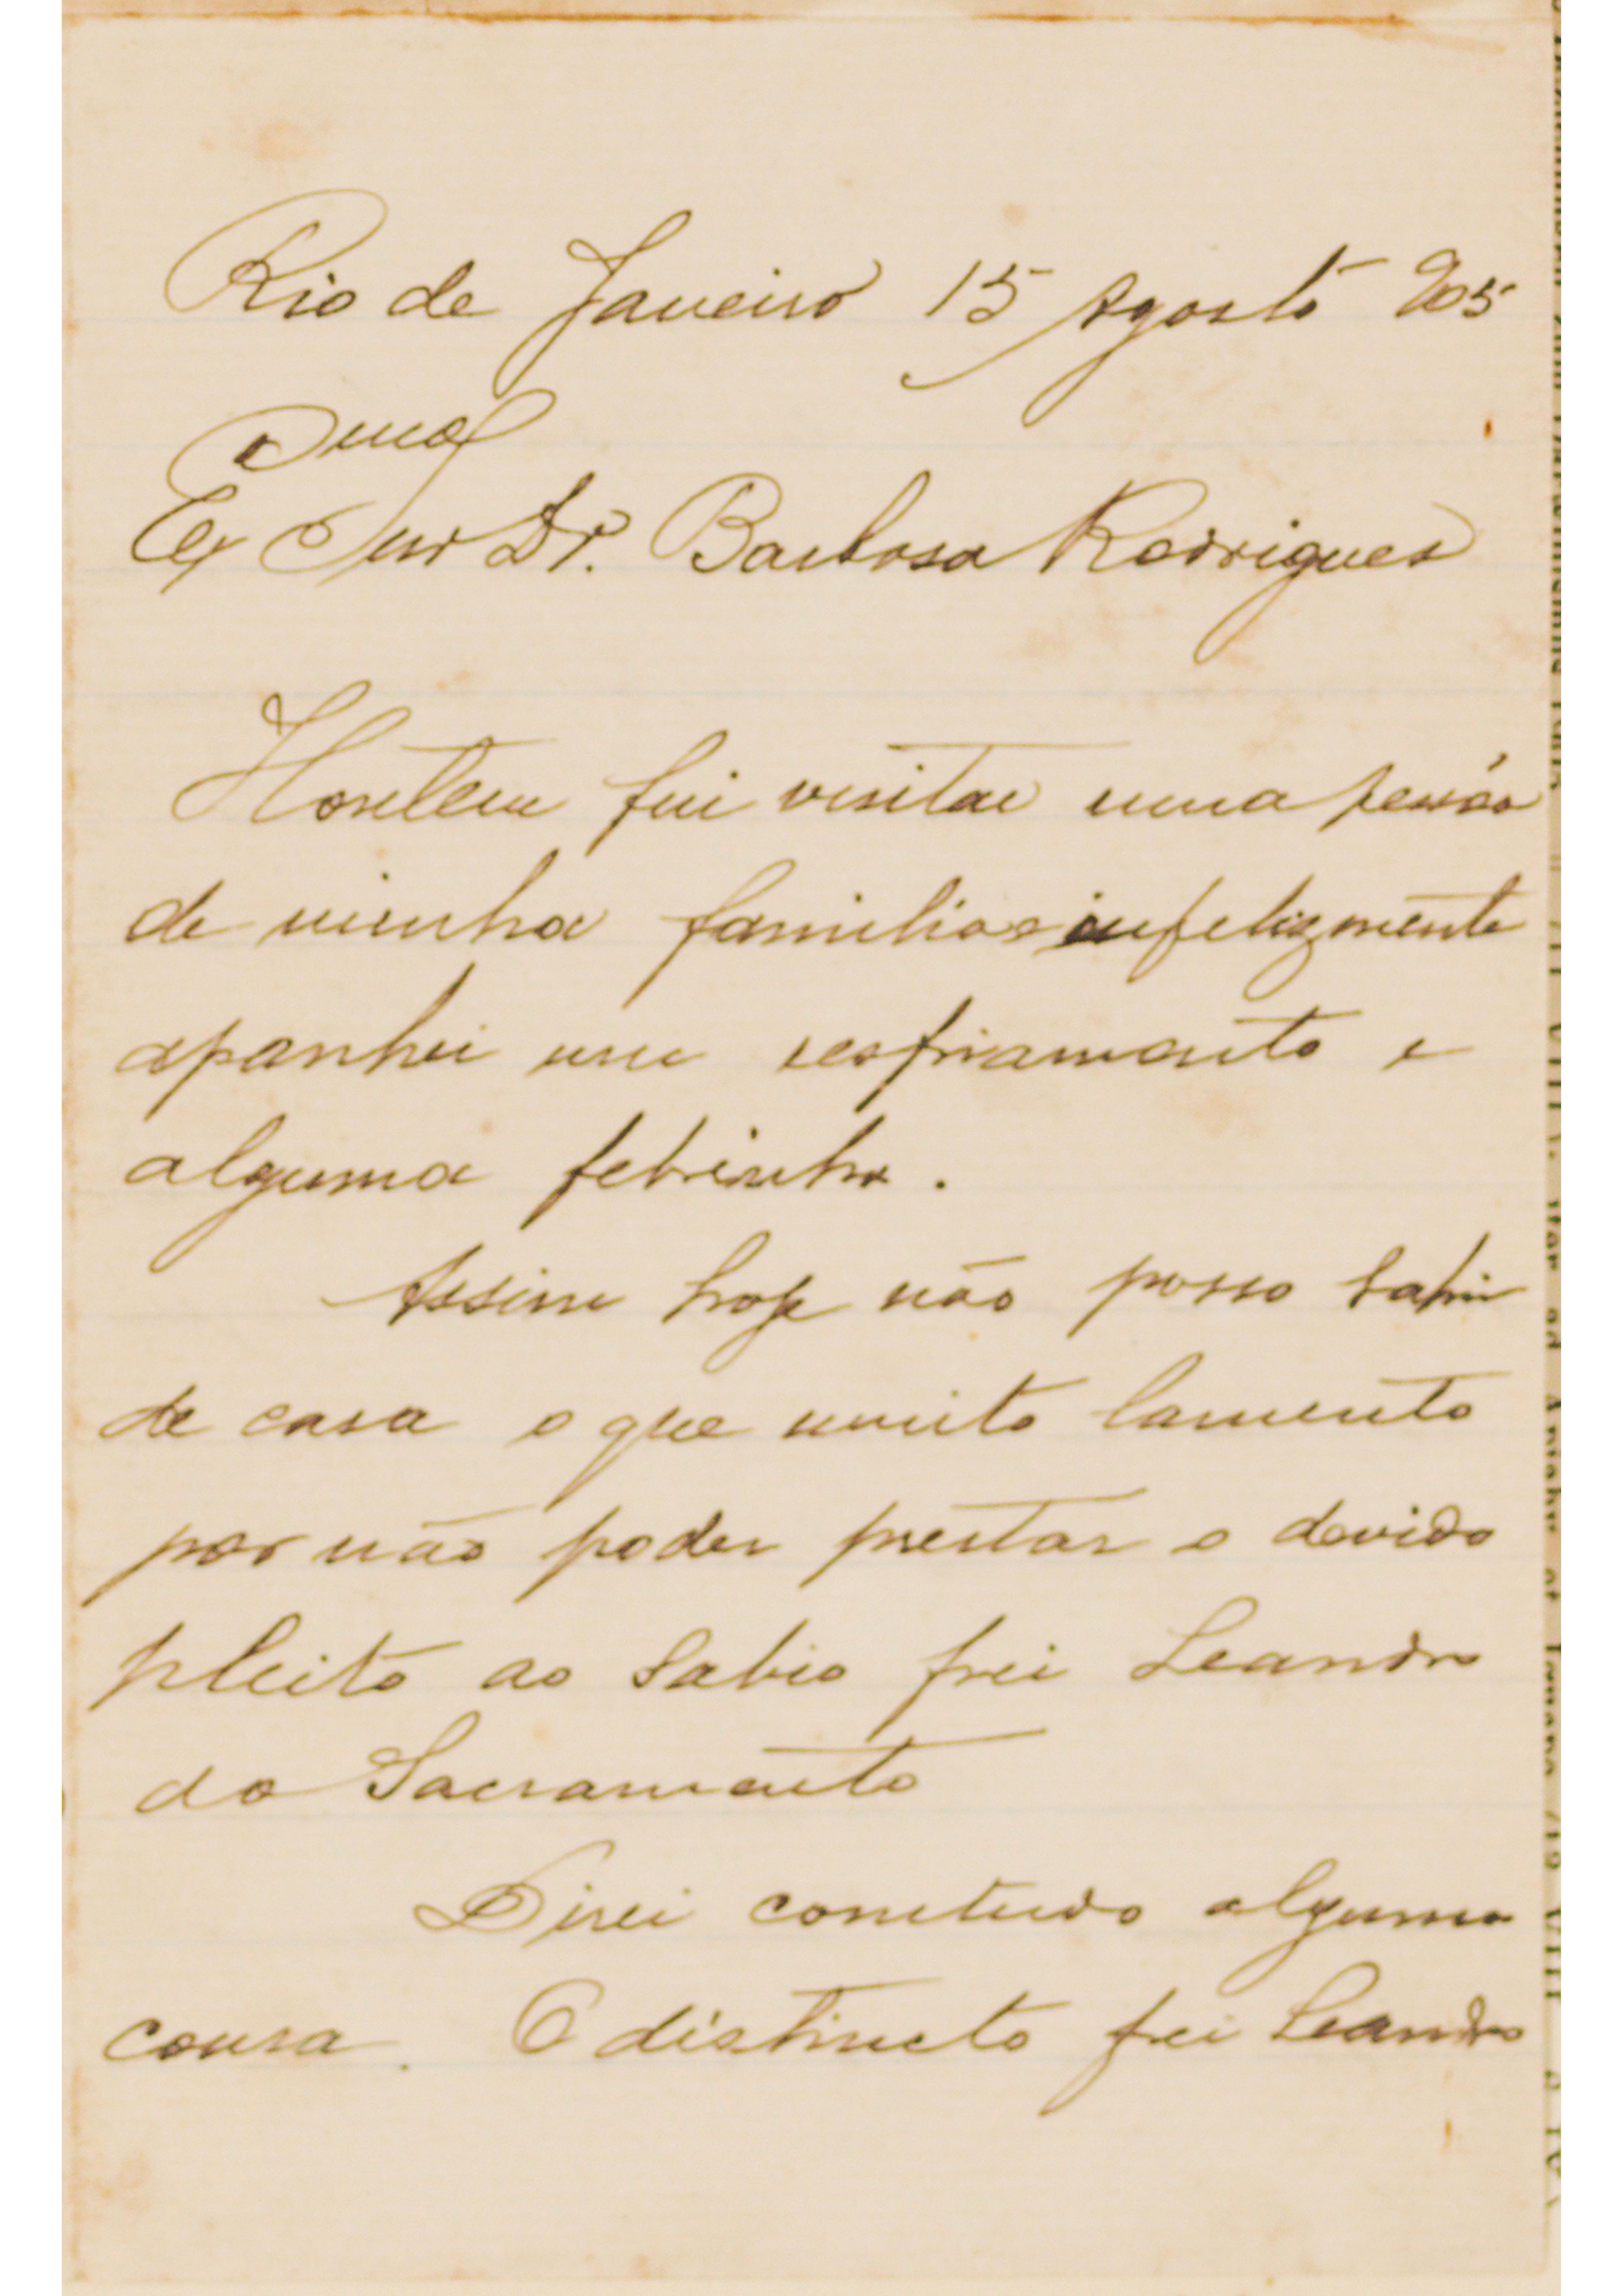 Rio de Janeiro 15 Agosto 905
Exmo Snr Dr. Barbosa Rodrigues
Hontem fui visitar uma pessôa
de minha familia e infelizmente
apanhei um resfriamento e
alguma febrinha.
Assim hoje não posso sahir
de casa o que muito lamento
por não poder prestar o devido
pleito ao sabio frei Leandro
do Sacramento
Direi comtudo alguma
cousa. O distincto frei Leandro